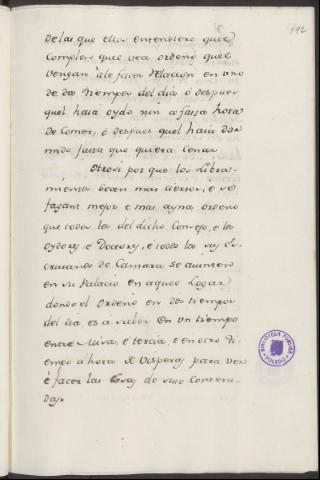 192
de las que ellos entendiere que
cumplen que vea ordenó que
vengan àle facer relacion en uno
de dos tiempos del dia ó despues
quel haia oydo misa fasta hora
de Comer, ó despues quel haia dor
mido fasta que quiera cenar
Otrosi por que los Libra-
mientos sean mas ciertos, e se
fagant mejor e mas ayna ordeno
que todos los del dicho Consejo, e los
oydores, e Doctores, e todos los sus Es-
crivanos de Camara se aiunten
en su Palacio en aquel Logar
donde el ordeno en dos tiempos
del dia, es a saber en un tiempo
entre Misa, e tercia, e en otro ti-
empo a hora de Visperas para ver
è facer las cosas de suso conteni-
das.
BIBLIOTECA PUBLICA
TOLEDO